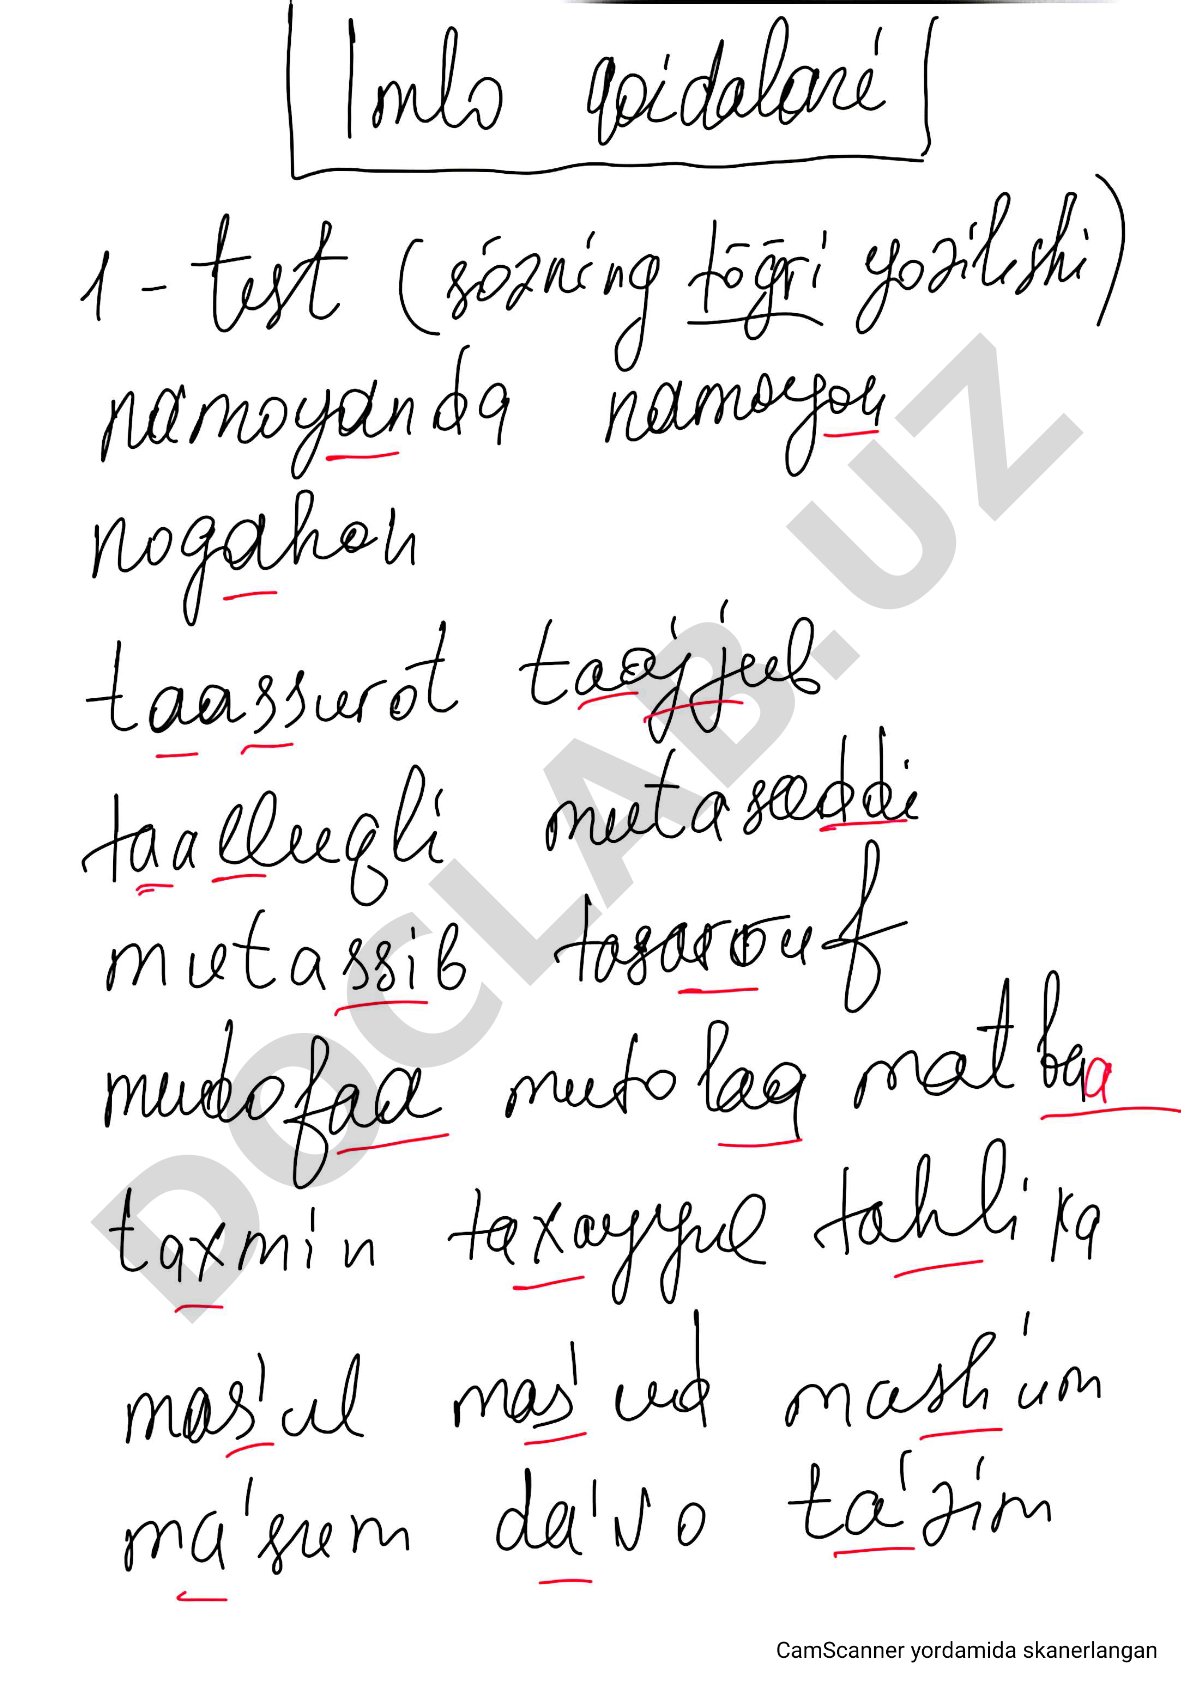 Imlo qoidalari
1 - test (sōzning tōḡri yozilishi)
namoyanda namoyon
nogahon
taassurot taajjub
taalluqli mutasaddi
mutassib tasarruf
mudofaa mutolaa matbaa
taxmin taxayyul tahlika
mas'ul mas'ud mash'um
ma'sum da'vo ta'zim
DOCLAB.UZ
CamScanner yordamida skanerlangan